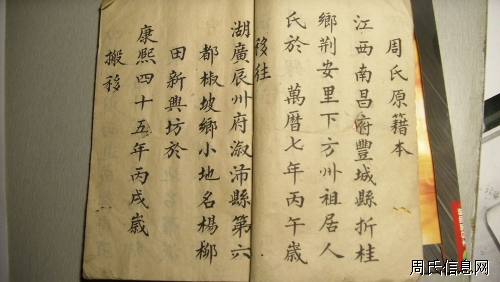 周氏原籍本
江西南昌府豐城縣折桂
鄉荆安里下方州祖居人
氏於 萬曆七年丙午歲
移往
湖廣辰州府溆沛縣第六
都椒坡鄉小地名楊柳
田新興坊於
康熙四十五年丙戌歲
搬移
周氏信息网